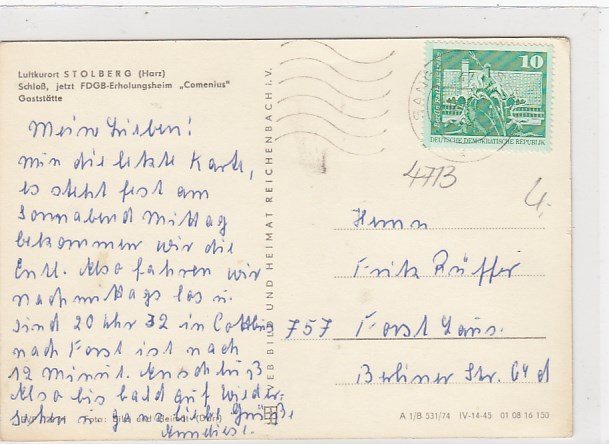 Luftkurort STOLBERG (Harz)
Schloß, jetzt FDGB-Erholungsheim „Comenius“
Gaststätte
Meine Lieben!
Nun die letzte Karte,
es steht fest am
Sonnabend Mittag
bekommen wir die
Entl. Also fahren wir
nachmittags los u.
sind 20 Uhr 32 in Cottbus
nach Forst ist nach
12 Minut. Anschluß
Also bis bald auf Wieder-
sehn u. ganz liebe Grüße
VEB BILD UND HEIMAT REICHENBACH I. V.
10
DEUTSCHE DEMOKRATISCHE REPUBLIK
4713
4,-
Herrn
Fritz Rüffer
757 Forst Laus.
Berliner Str. 64 d
A 1/B 531/74 IV-14-45 01 08 16 150